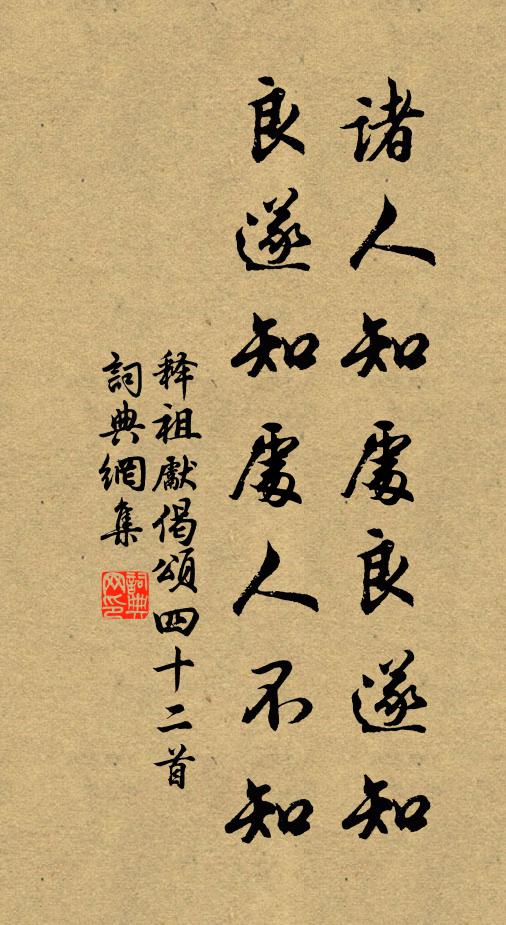 諸人知處良遂知
良遂知處人不知
释祖獻偈頌四十二首
詞典網集
詞典网印